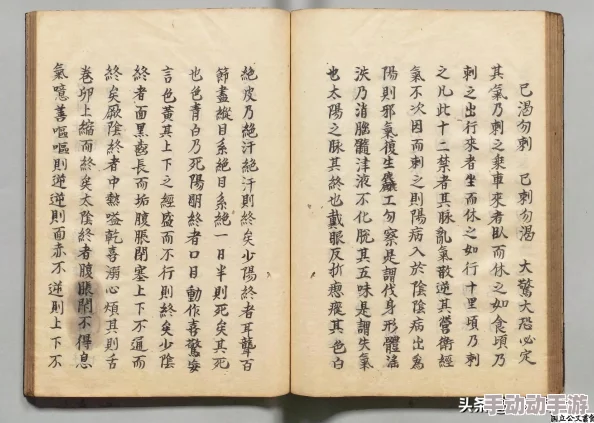 已渴勿刺 已刺勿渴 大驚大恐必定
其氣乃刺之乘車來者臥而休之如食頃乃
刺之出行來者坐而休之如行十里頃乃刺
之凡此十二禁者其脉亂氣散逆其營衛經
氣不次因而刺之則陽病入於陰陰病出為
陽則邪氣復生麤工勿察是謂伐身形體淫
泆乃消腦髓津液不化脫其五味是謂失氣
也太陽之脉其終也戴眼反折瘛瘲其色白
絶皮乃絶汗絶汗則終矣少陽終者耳聾百
節盡縱目系絶目系絶一日半則死矣其死
也色青白乃死陽明終者口目動作喜驚妄
言色黃其上下之經盛而不行則終矣少陰
終者面黑齒長而垢腹脹閉塞上下不通而
終矣厥陰終者中熱嗌乾喜溺心煩甚則舌
卷卵上縮而終矣太陰終者腹脹閉不得息
氣噫善嘔嘔則逆逆則面赤不逆則上下不
头条
手动动手游
国立公文書館